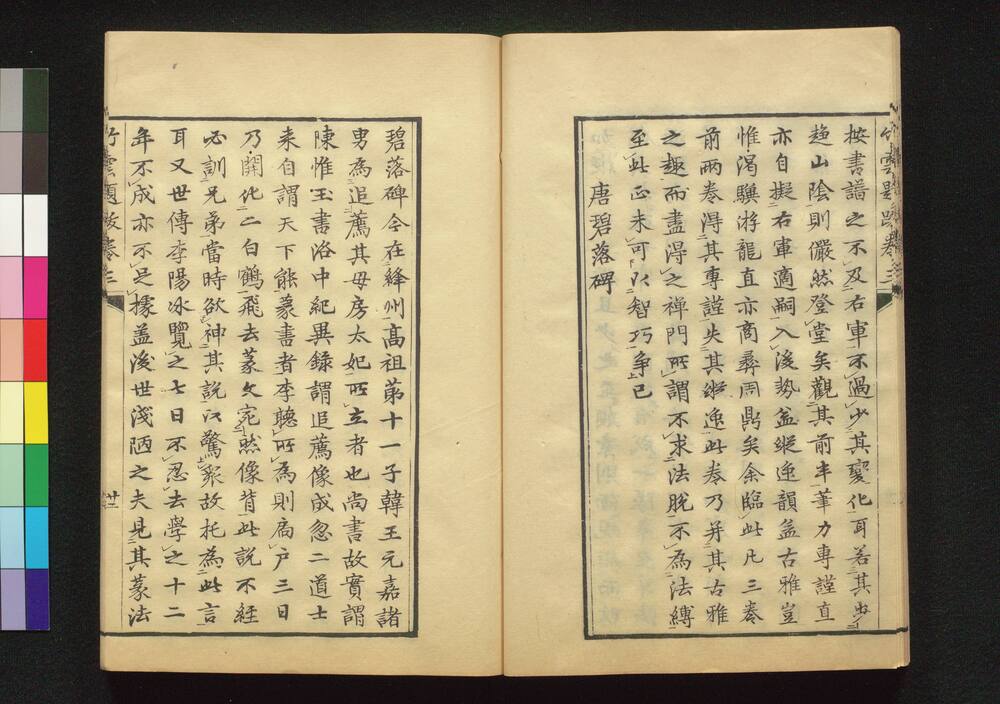 竹雲題跋卷三
按書譜之不及右軍不過少其變化耳若其步
趨山陰則儼然登堂矣觀其前半筆力專謹直
亦自擬右軍適嗣入後勢益縱逸韻益古雅豈
惟渴驥游龍直亦商彝周鼎矣余臨此凡三卷
前兩卷得其專謹失其縱逸此卷乃并其古雅
之趣而盡得之禅門所謂不求法脫不為法縛
至此正未可以智巧爭已
唐碧落碑
碧落碑今在絳州高祖第十一子韓王元嘉諸
男為追薦其母房太妃所立者也尚書故實謂
陳惟玉書洛中紀異錄謂追薦像成忽二道士
来自謂天下能篆書者李聰所為則扃户三日
乃開化二白鶴飛去篆文宛然像背此說不經
必訓兄弟當時欲神其說以驚眾故托為此言
耳又世傳李陽冰覽之七日不忍去學之十二
年不成亦不足據盖後世淺陋之夫見其篆法
竹雲題跋卷三
廿二